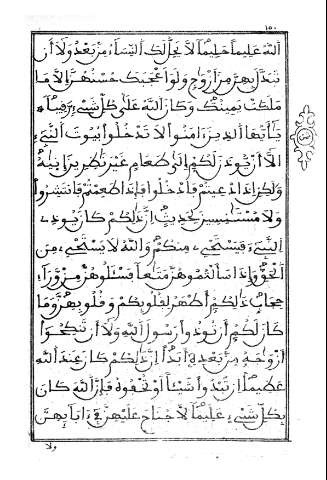 ١٥٠
اللَّهُ عَلِيماً حَلِيماً لَّا يَحِلُّ لَكَ النِّسَاءُ مِنۢ بَعْدُ وَلَا أَن
تَبَدَّلَ بِهِنَّ مِنْ أَزْوَٰجٍ وَلَوْ أَعْجَبَكَ حُسْنُهُنَّ إِلَّا مَا
مَلَكَتْ يَمِينُكَ وَكَانَ اللَّهُ عَلَىٰ كُلِّ شَيْءٍ رَّقِيباً
يَٰأَيُّهَا الَّذِينَ ءَامَنُوا لَا تَدْخُلُوا بُيُوتَ النَّبِيءِ
الَّا أَنْ يُّوذَنَ لَكُمْ إِلَىٰ طَعَامٍ غَيْرَ نَٰظِرِينَ إِنَيٰهُ
وَلَٰكِنِ اذَا دُعِيتُمْ فَادْخُلُوا فَإِذَا طَعِمْتُمْ فَانتَشِرُوا
وَلَا مُسْتَٰنِسِينَ لِحَدِيثٍ إِنَّ ذَٰلِكُمْ كَانَ يُوذِي
النَّبِيءَ فَيَسْتَحْيِي مِنكُمْ وَاللَّهُ لَا يَسْتَحْيِي مِنَ
الْحَقِّ وَإِذَا سَأَلْتُمُوهُنَّ مَتَٰعاً فَسْـَٔلُوهُنَّ مِنْ وَّرَاءِ
حِجَابٍ ذَٰلِكُمُ أَطْهَرُ لِقُلُوبِكُمْ وَقُلُوبِهِنَّ وَمَا
كَانَ لَكُمُ أَن تُوذُوا رَسُولَ اللَّهِ وَلَا أَن تَنكِحُوا
أَزْوَٰجَهُ مِنۢ بَعْدِهِ أَبَداً إِنَّ ذَٰلِكُمْ كَانَ عِندَ اللَّهِ
عَظِيماً إِن تُبْدُوا شَيْـٔاً أَوْ تُخْفُوهُ فَإِنَّ اللَّهَ كَانَ
بِكُلِّ شَيْءٍ عَلِيماً لَّا جُنَاحَ عَلَيْهِنَّ فِي ءَابَائِهِنَّ
ولا